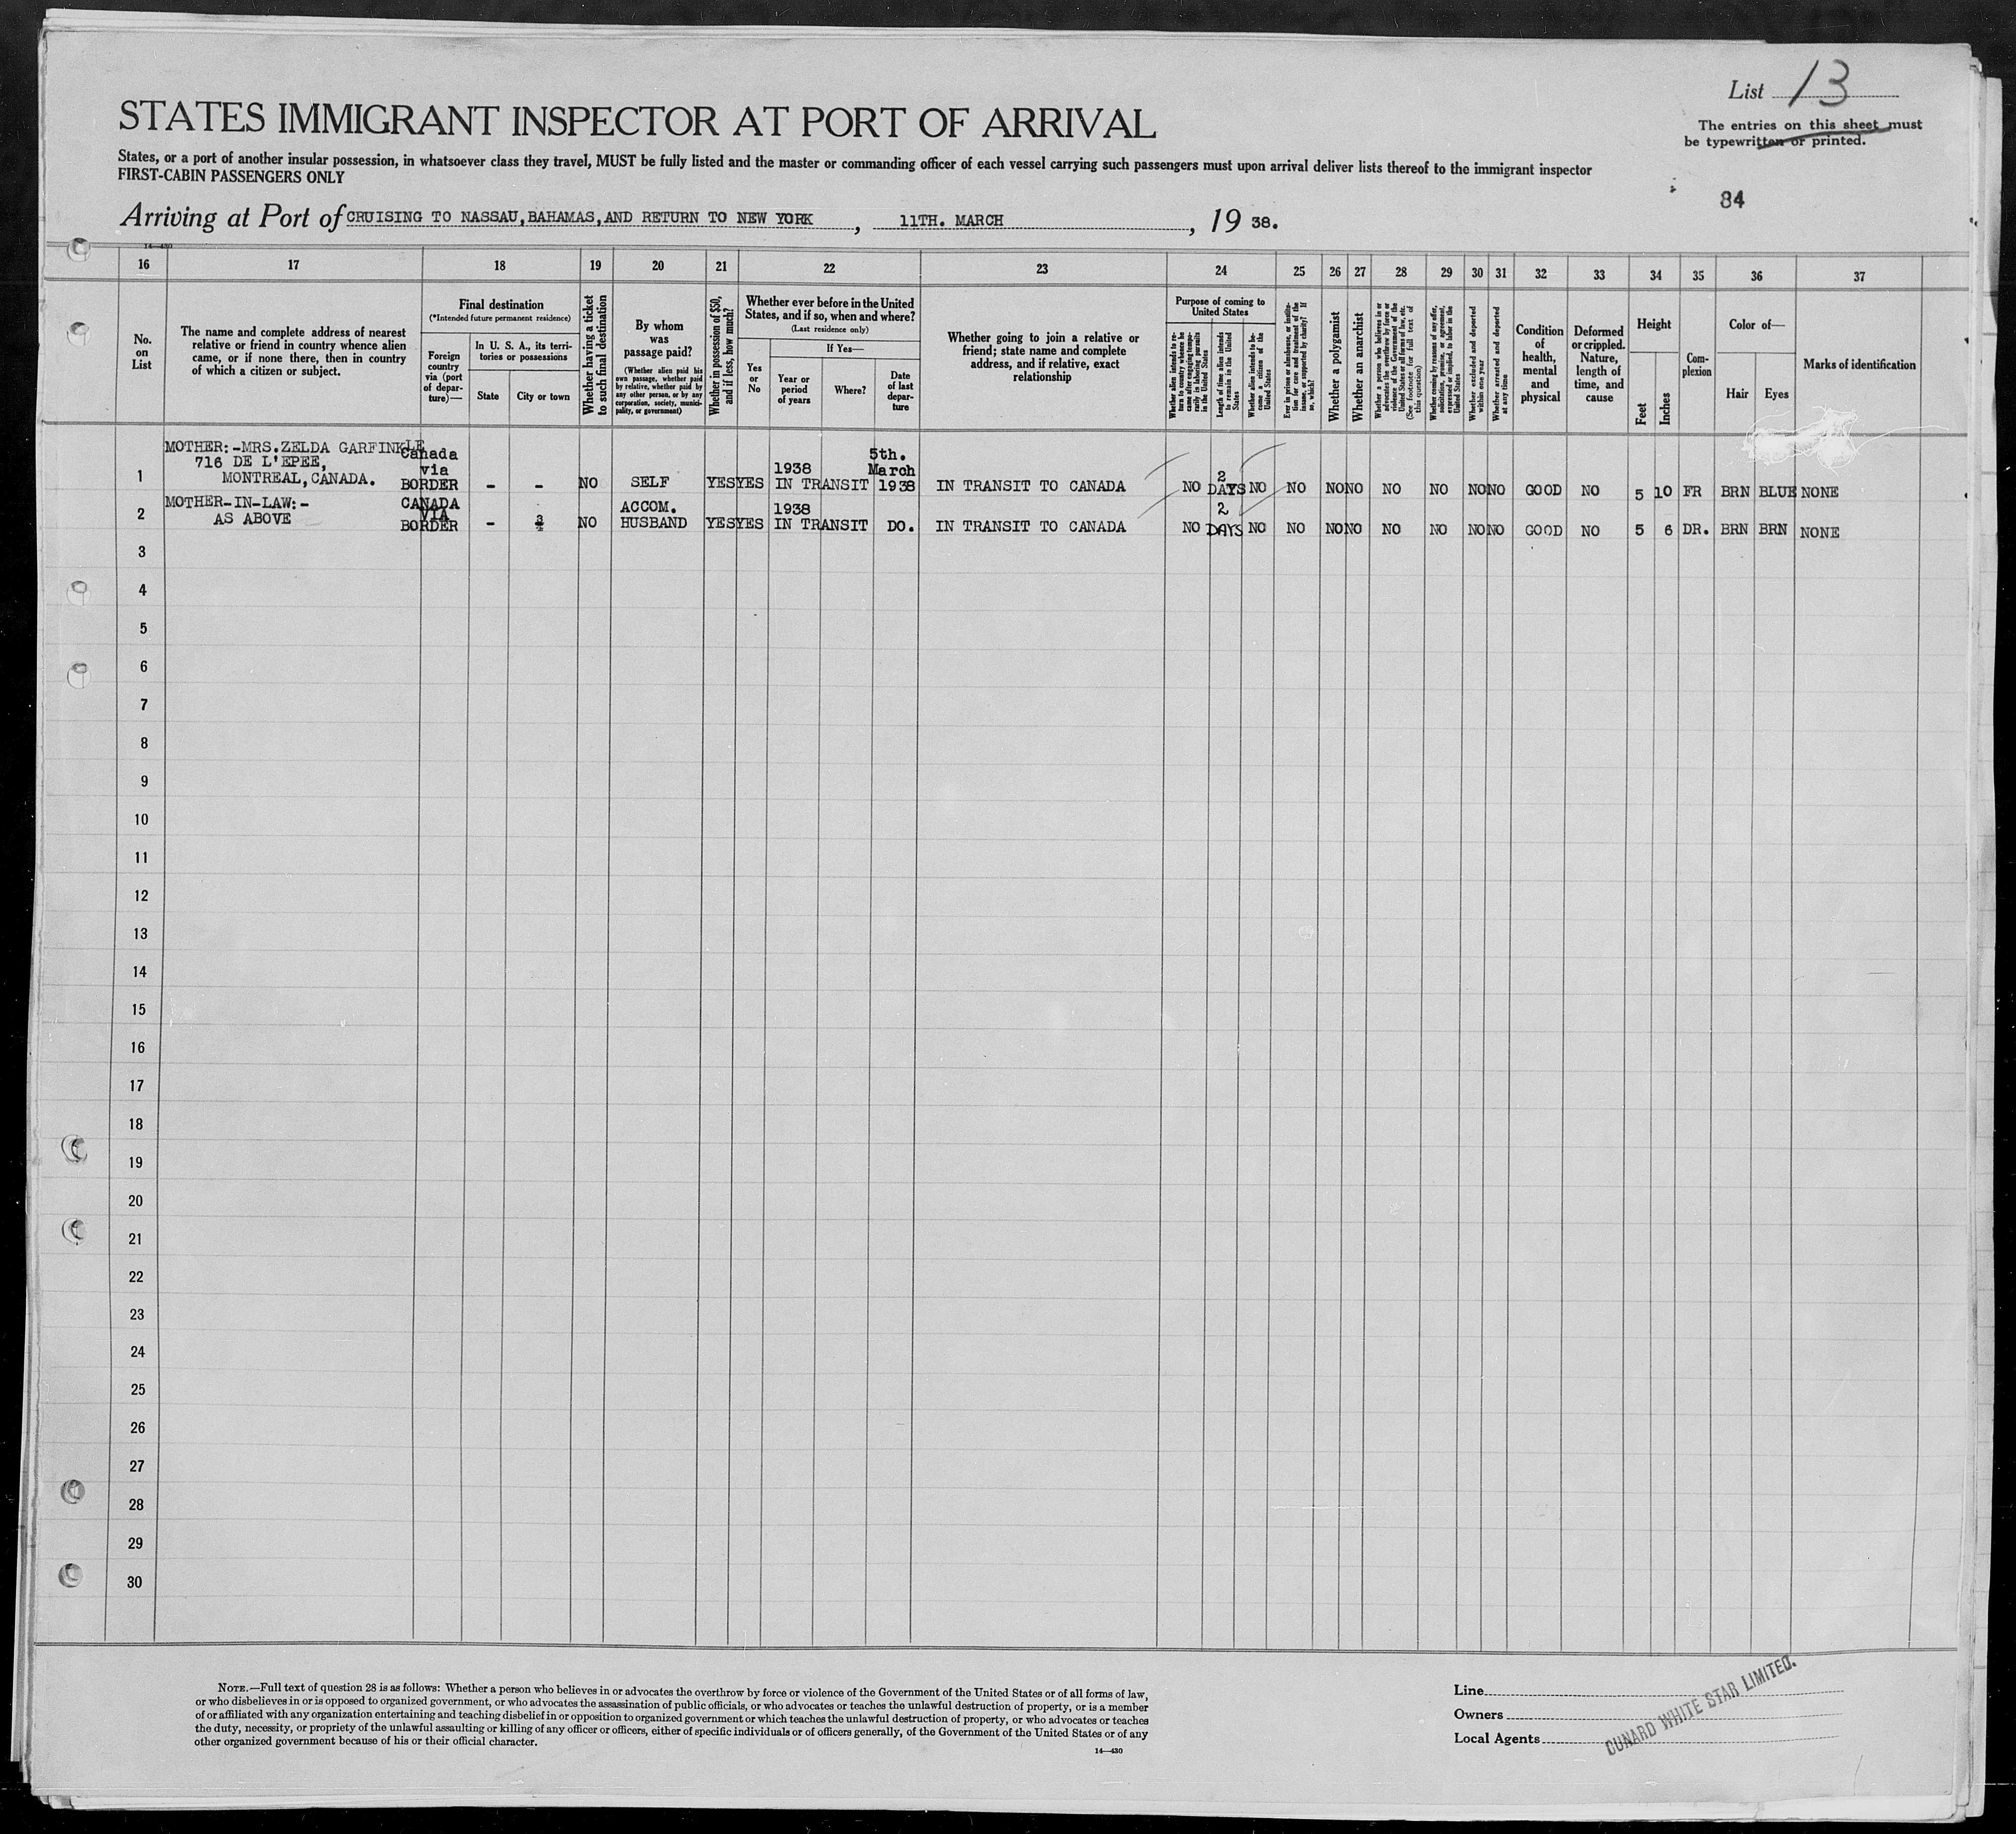 List 13
The entries on this sheet must
be typewritten or printed.
STATES IMMIGRANT INSPECTOR AT PORT OF ARRIVAL
States, or a port of another insular possession, in whatsoever class they travel, MUST be fully listed and the master or commanding officer of each vessel carrying such passengers must upon arrival deliver lists thereof to the immigrant inspector
FIRST-CABIN PASSENGERS ONLY
84
Arriving at Port of CRUISING TO NASSAU, BAHAMAS, AND RETURN TO NEW YORK, 11TH. MARCH, 19 38.
14—430
16 17 18 19 20 21 22 23 24 25 26 27 28 29 30 31 32 33 34 35 36 37
No.
on
List
The name and complete address of nearest
relative or friend in country whence alien
came, or if none there, then in country
of which a citizen or subject.
Final destination
(*Intended future permanent residence)
Foreign
country
via (port
of depar-
ture)—
In U. S. A., its terri-
tories or possessions
State
City or town
Whether having a ticket
to such final destination
By whom
was
passage paid?
(Whether alien paid his
own passage, whether paid
by relative, whether paid by
any other person, or by any
corporation, society, munici-
pality, or government)
Whether in possession of $50,
and if less, how much?
Whether ever before in the United
States, and if so, when and where?
(Last residence only)
Yes
or
No
If Yes—
Year or
period
of years
Where?
Date
of last
depar-
ture
Whether going to join a relative or
friend; state name and complete
address, and if relative, exact
relationship
Purpose of coming to
United States
Whether alien intends to re-
turn to country whence he
came after engaging tempo-
rarily in laboring pursuits
in the United States
Length of time alien intends
to remain in the United
States
Whether alien intends to be-
come a citizen of the
United States
Ever in prison or almshouse, or institu-
tion for care and treatment of the
insane, or supported by charity? If
so, which?
Whether a polygamist
Whether an anarchist
Whether a person who believes in or
advocates the overthrow by force or
violence of the Government of the
United States or all forms of law, etc.
(See footnote for full text of
this question)
Whether coming by reasons of any offer,
solicitation, promise, or agreement,
expressed or implied, to labor in the
United States
Whether excluded and deported
within one year
Whether arrested and deported
at any time
Condition
of
health,
mental
and
physical
Deformed
or crippled.
Nature,
length of
time, and
cause
Height
Feet
Inches
Com-
plexion
Color of—
Hair
Eyes
Marks of identification
MOTHER:-MRS. ZELDA GARFINKLE
716 DE L'EPEE,
MONTREAL, CANADA.
Canada
via
BORDER
1 - - NO SELF YES YES 1938 IN TRANSIT 5th. March 1938 IN TRANSIT TO CANADA NO 2 DAYS NO NO NO NO NO NO NO NO GOOD NO 5 10 FR BRN BLUE NONE
MOTHER-IN-LAW:-
AS ABOVE
CANADA
VIA
BORDER
2 - NO ACCOM. HUSBAND YES YES 1938 IN TRANSIT DO. IN TRANSIT TO CANADA NO 2 DAYS NO NO NO NO NO NO NO NO GOOD NO 5 6 DR. BRN BRN NONE
3
4
5
6
7
8
9
10
11
12
13
14
15
16
17
18
19
20
21
22
23
24
25
26
27
28
29
30
NOTE.—Full text of question 28 is as follows: Whether a person who believes in or advocates the overthrow by force or violence of the Government of the United States or of all forms of law,
or who disbelieves in or is opposed to organized government, or who advocates the assassination of public officials, or who advocates or teaches the unlawful destruction of property, or is a member
of or affiliated with any organization entertaining and teaching disbelief in or opposition to organized government or which teaches the unlawful destruction of property, or who advocates or teaches
the duty, necessity, or propriety of the unlawful assaulting or killing of any officer or officers, either of specific individuals or of officers generally, of the Government of the United States or of any
other organized government because of his or their official character.
14—430
Line
Owners
Local Agents
CUNARD WHITE STAR LIMITED.